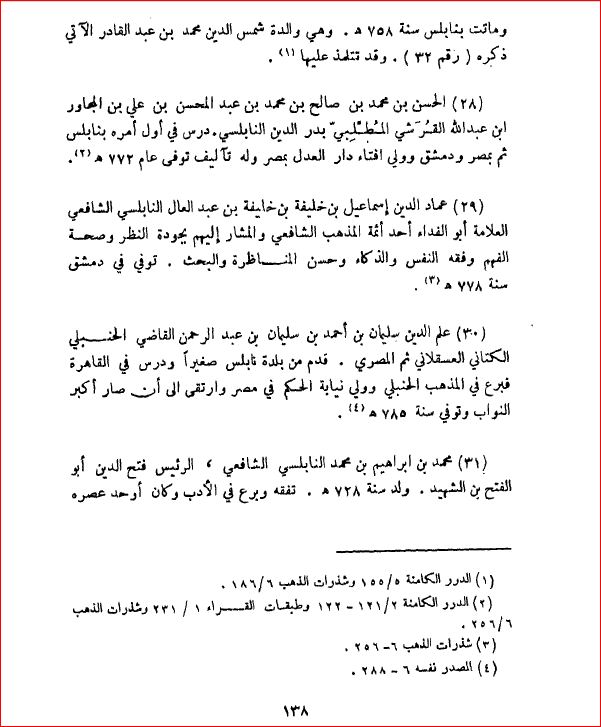 وماتت بنابلس سنة ٧٥٨ ه . وهي والدة شمس الدين محمد بن عبد القادر الآتي
ذكره ( رقم ٣٢ ) . وقد تتلمذ عليها (١) .
(٢٨) الحسن بن محمد بن صالح بن محمد بن عبد المحسن بن علي بن المجاور
ابن عبدالله القُرَشي المُطَّلِبيّ بدر الدين النابلسي.درس في أول أمره بنابلس
ثم بمصر ودمشق وولي افتاء دار العدل بمصر وله تآليف توفى عام ٧٧٢ ه (٢).
(٢٩) عماد الدين إسماعيل بن خليفة بن خليفة بن عبد العال النابلسي الشافعي
العلامة أبو الفداء أحد أئمة المذهب الشافعي والمشار إليهم بجودة النظر وصحة
الفهم وفقه النفس والذكاء وحسن المناظرة والبحث . توفي في دمشق
سنة ٧٧٨ ه (٣) .
(٣٠) علم الدين سليمان بن أحمد بن سليمان بن عبد الرحمن القاضي الحنبلي
الكتاني العسقلاني ثم المصري . قدم من بلدة نابلس صغيراً ودرس في القاهرة
فبرع في المذهب الحنبلي وولي نيابة الحكم في مصر وارتقى الى أن صار أكبر
النواب وتوفي سنة ٧٨٥ ه (٤) .
(٣١) محمد بن ابراهيم بن محمد النابلسي الشافعي ، الرئيس فتح الدين أبو
الفتح بن الشهيد . ولد سنة ٧٢٨ ه . تفقه وبرع في الأدب وكان أوحد عصره
(١) الدرر الكامنة ١٥٥/٥ وشذرات الذهب ١٨٦/٦ .
(٢) الدرر الكامنة ١٢١/٢ – ١٢٢ وطبقات القراء ١ / ٢٣١ وشذرات الذهب
٢٥٦/٦ .
(٣) شذرات الذهب ٦– ٢٥٦ .
(٤) المصدر نفسه ٦ – ٢٨٨ .
١٣٨